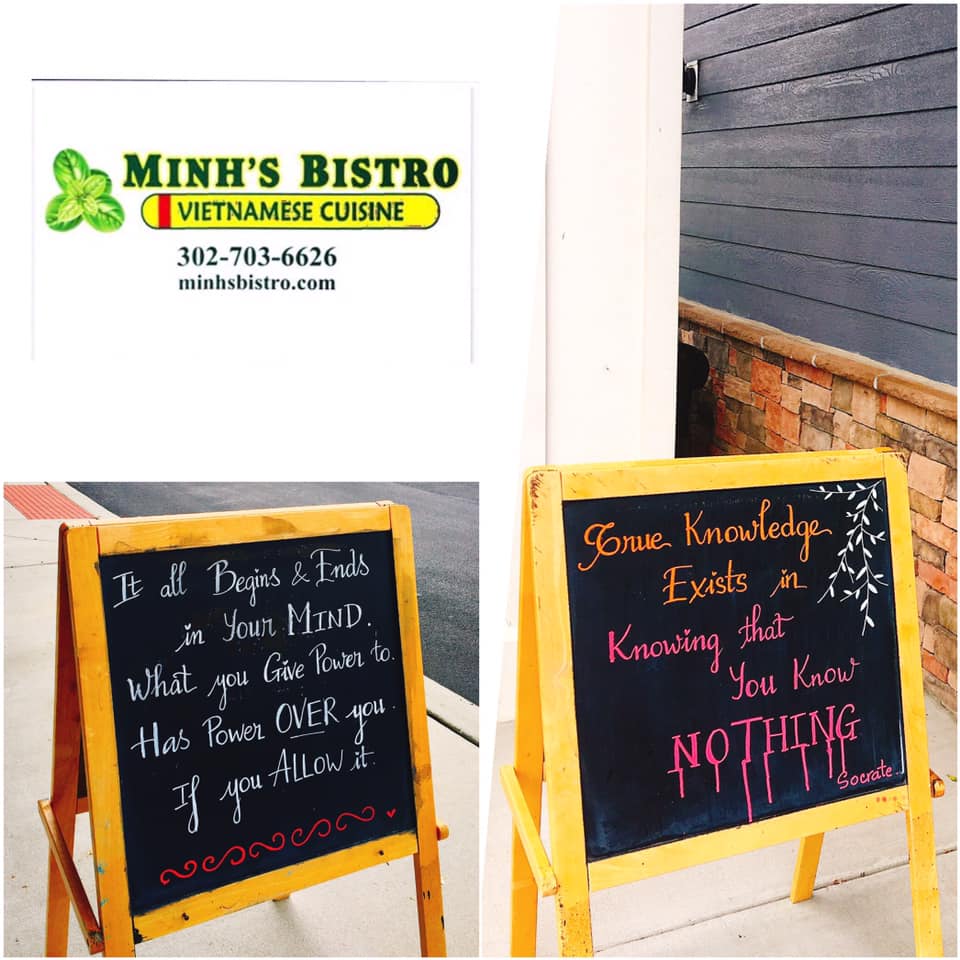 MINH'S BISTRO
VIETNAMESE CUISINE
302-703-6626
minhsbistro.com
It all Begins & Ends
in Your MIND.
What you Give Power to.
Has Power OVER you.
If you ALLOW it.
True Knowledge
Exists in
Knowing that
You Know
NOTHING
Socrate.